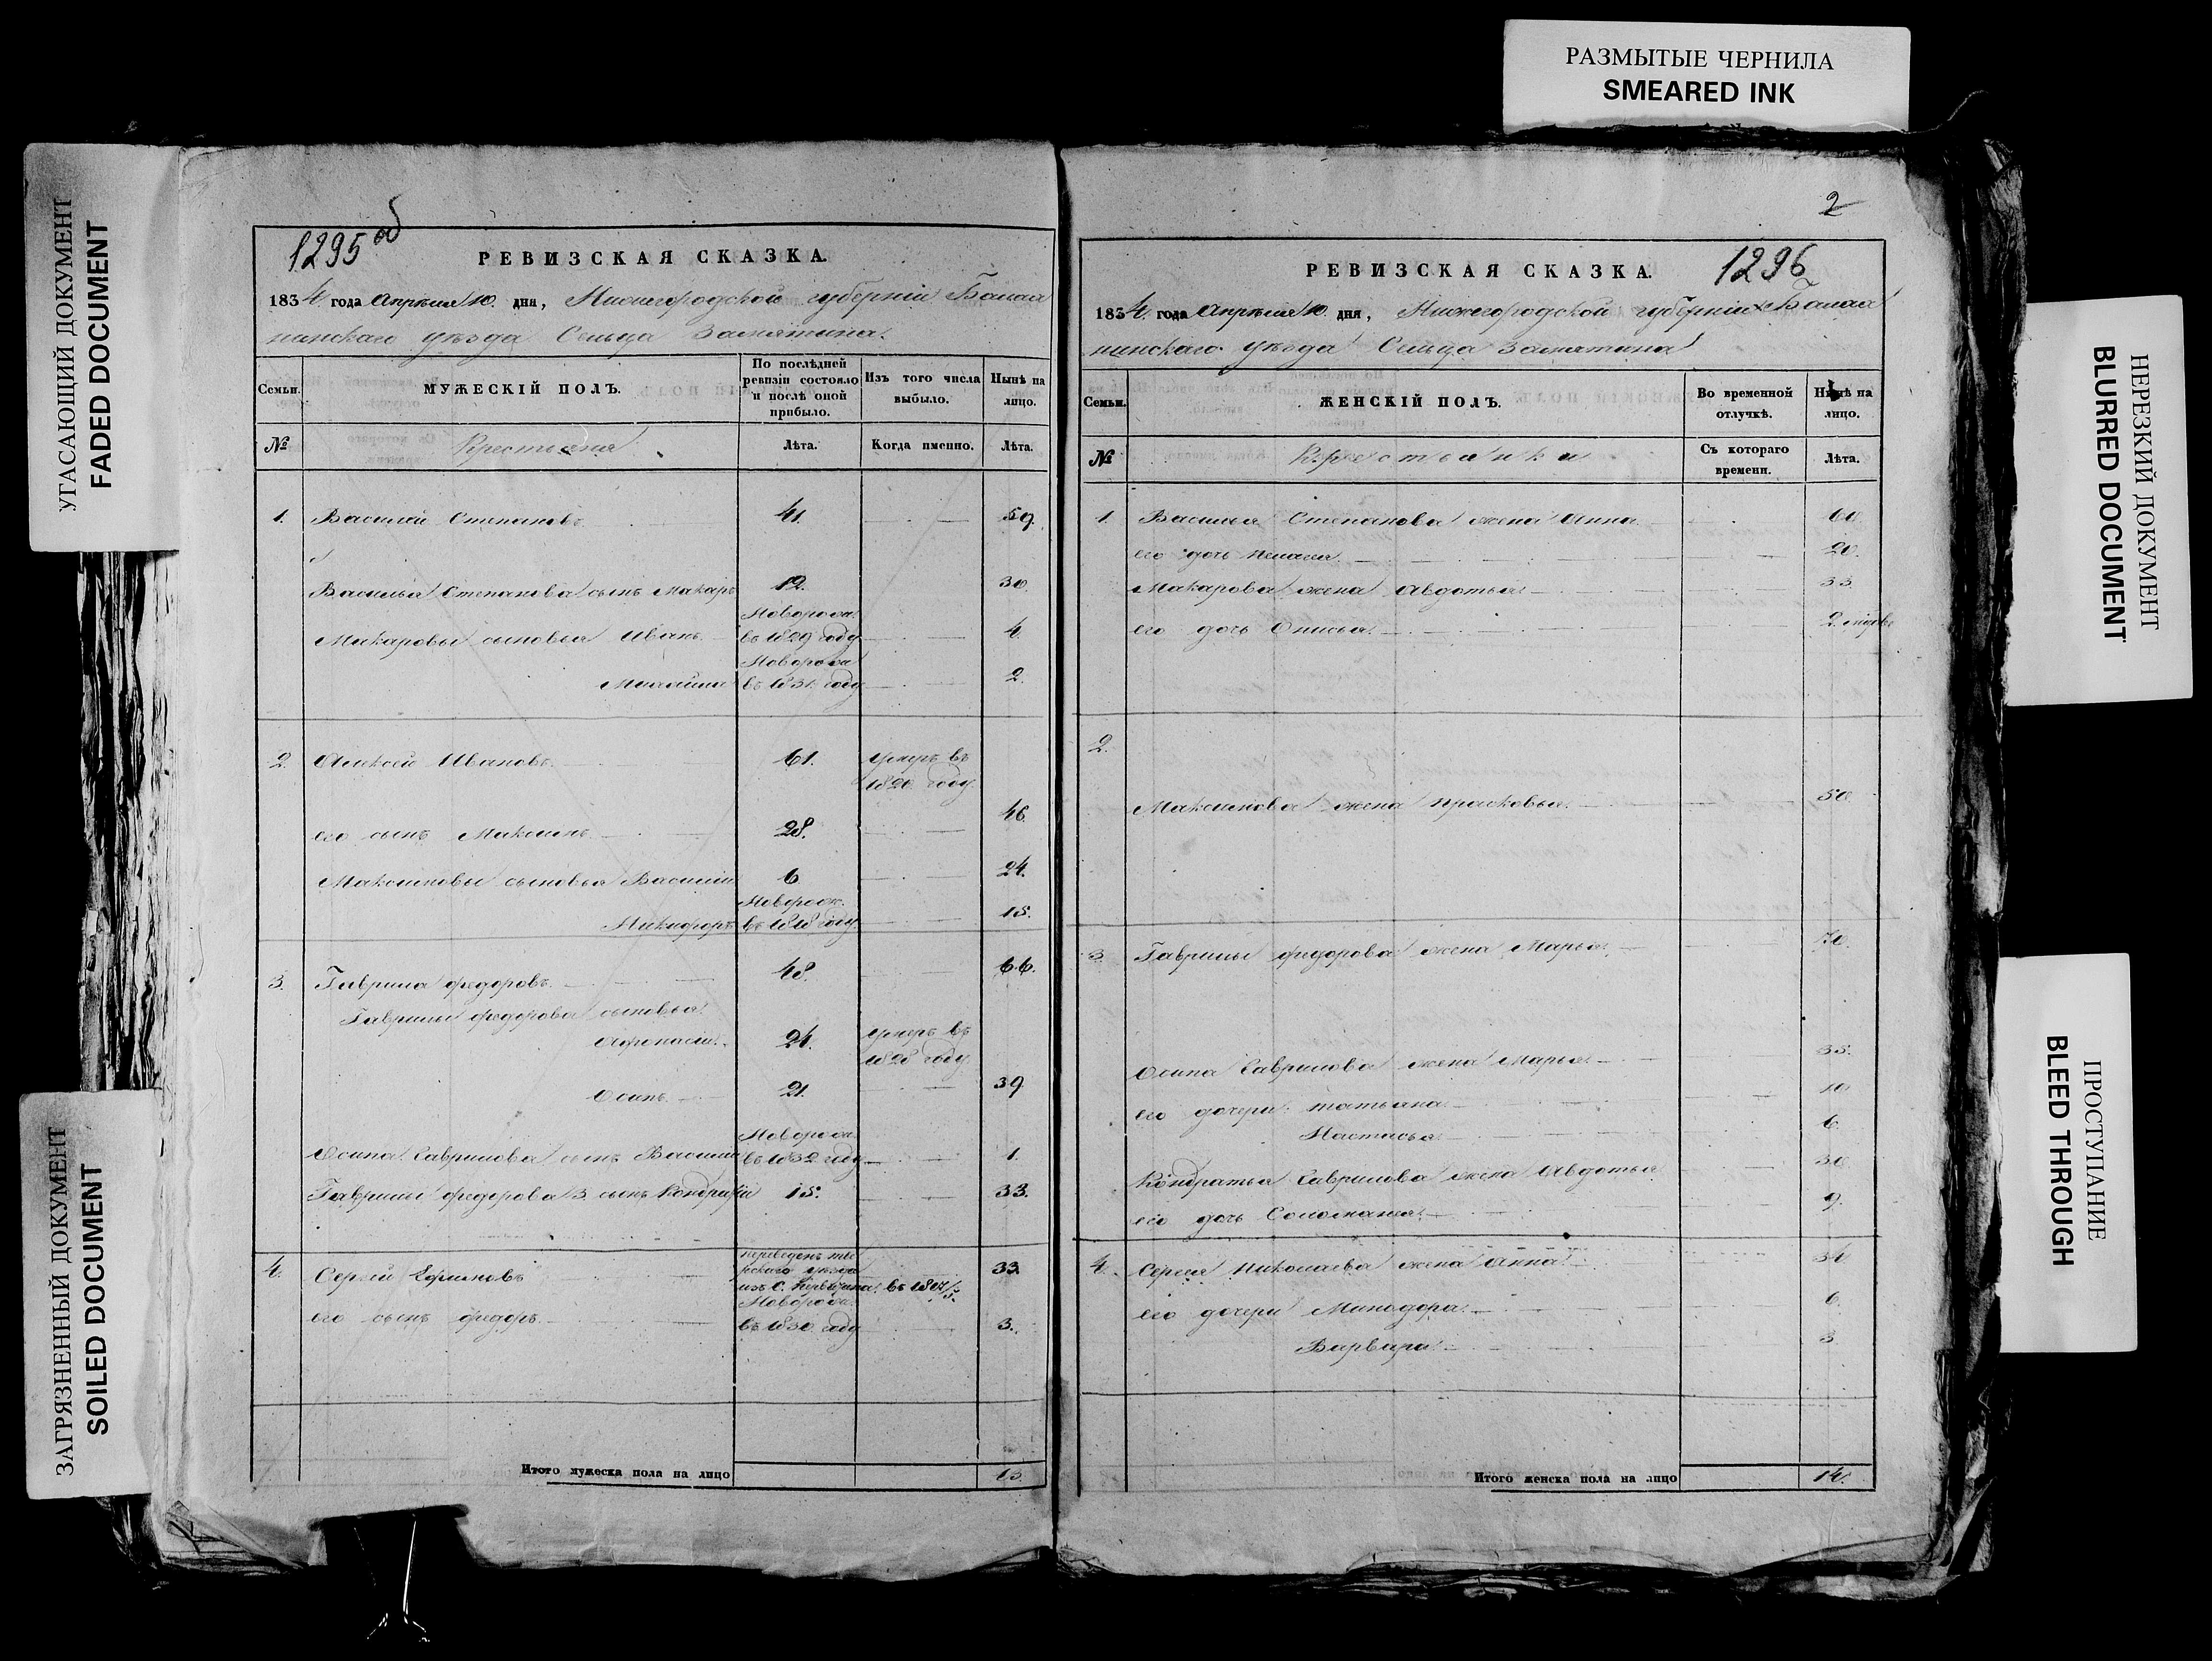 РАЗМЫТЫЕ ЧЕРНИЛА
SMEARED INK
УГАСАЮЩИЙ ДОКУМЕНТ
FADED DOCUMENT
ЗАГРЯЗНЕННЫЙ ДОКУМЕНТ
SOILED DOCUMENT
1295 об
РЕВИЗСКАЯ СКАЗКА.
1834 года Апреля 10. дня, Нижегородской губернии Балах
нинскаго уѣзда Сельца Замятина.
Семьи. МУЖЕСКІЙ ПОЛЪ. По послѣдней ревизіи состояло и послѣ оной прибыло. Изъ того числа выбыло. Нынѣ на лицо.
№ Крестьяне Лѣта. Когда именно. Лѣта.
1. Василей Степановъ 41. 59.
Василья Степанова сынъ Макаръ 12. 30.
Новорожд.
Макаровы сыновья Иванъ въ 1829 году 4.
Новорожд.
въ 1831 году 2.
2. Алексей Ивановъ 61. умеръ въ
1820 году
его сынъ Максимъ 28. 46.
Максимовы сыновья Василий 6 24.
Новорож.
Никифоръ въ 1818 году 15.
3. Гаврила Федоровъ 48. 66.
Гаврилы Федорова сыновья
Афонасий 24. умеръ въ
1828 году
Осипъ 21. 39
Новорожд.
Осипа Гаврилова сынъ Василий въ 1832 году 1.
Гаврилы Федорова 3. сынъ Кондратий 15. 33.
4. Сергей переведенъ
уезда 33.
изъ С. въ
Новорожд.
его сынъ Федоръ въ 1830 году 3.
Итого мужеска пола на лицо
2
1296
РЕВИЗСКАЯ СКАЗКА.
1834 года Апреля 10. дня, Нижегородской губернии Балах
нинскаго уѣзда Сельца Замятина
Семьи. ЖЕНСКІЙ ПОЛЪ. Во временной отлучкѣ. Нынѣ на лицо.
№ Крестьянки Съ котораго времени. Лѣта.
1. Василья Степанова жена Анна 60
его дочь Пелагея 20.
Макарова жена Авдотья 33
его дочь Анисья 2
2.
Максимова жена Прасковья 50
3. Гаврилы Федорова жена Марья 70.
Осипа Гаврилова жена Марья 35.
его дочери Татьяна 10
Настасья 6.
Кондратья Гаврилова жена Авдотья 30
его дочь Соломанея 9.
4. Сергея Николаева жена Анна 34
его дочери Минодора 6.
Варвара 3
Итого женска пола на лицо 14.
НЕРЕЗКИЙ ДОКУМЕНТ
BLURRED DOCUMENT
ПРОСТУПАНИЕ
BLEED THROUGH